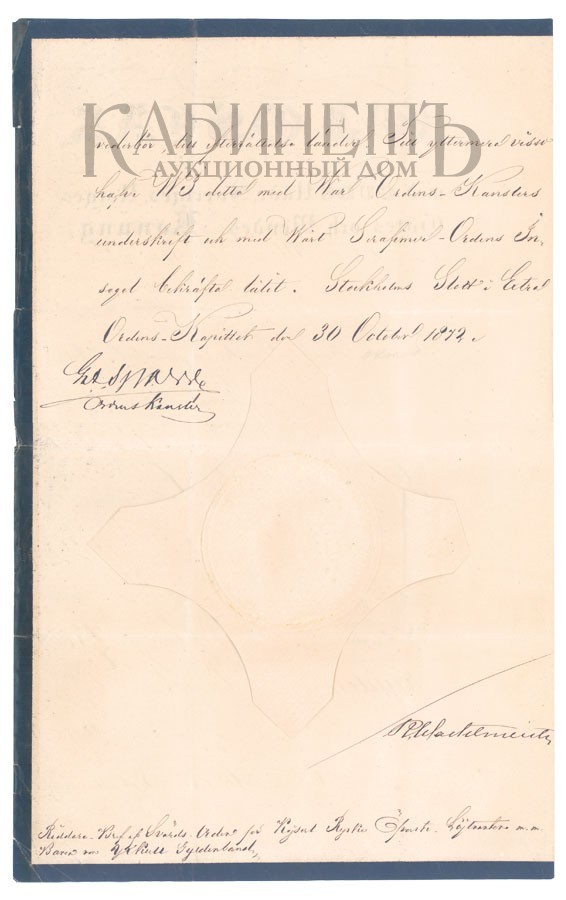 КАБИНЕТЪ
АУКЦИОННЫЙ ДОМ
vederbör, till efterrättelse länder. Till yttermera visso
hafve WI detta med Wår Ordens-Kanslers
underskrift och med Wårt Serafimer-Ordens In-
segel bekräfta låtit. Stockholms Slott i Extra
Ordens-Kapittel den 30 October 1872.
G. Sparre
Ordens Kansler
Riddare-Bref af Svärds-Orden för Kejserl Ryske Öfverste-Löjtnanten m.m.
Baron von Gyldenband,